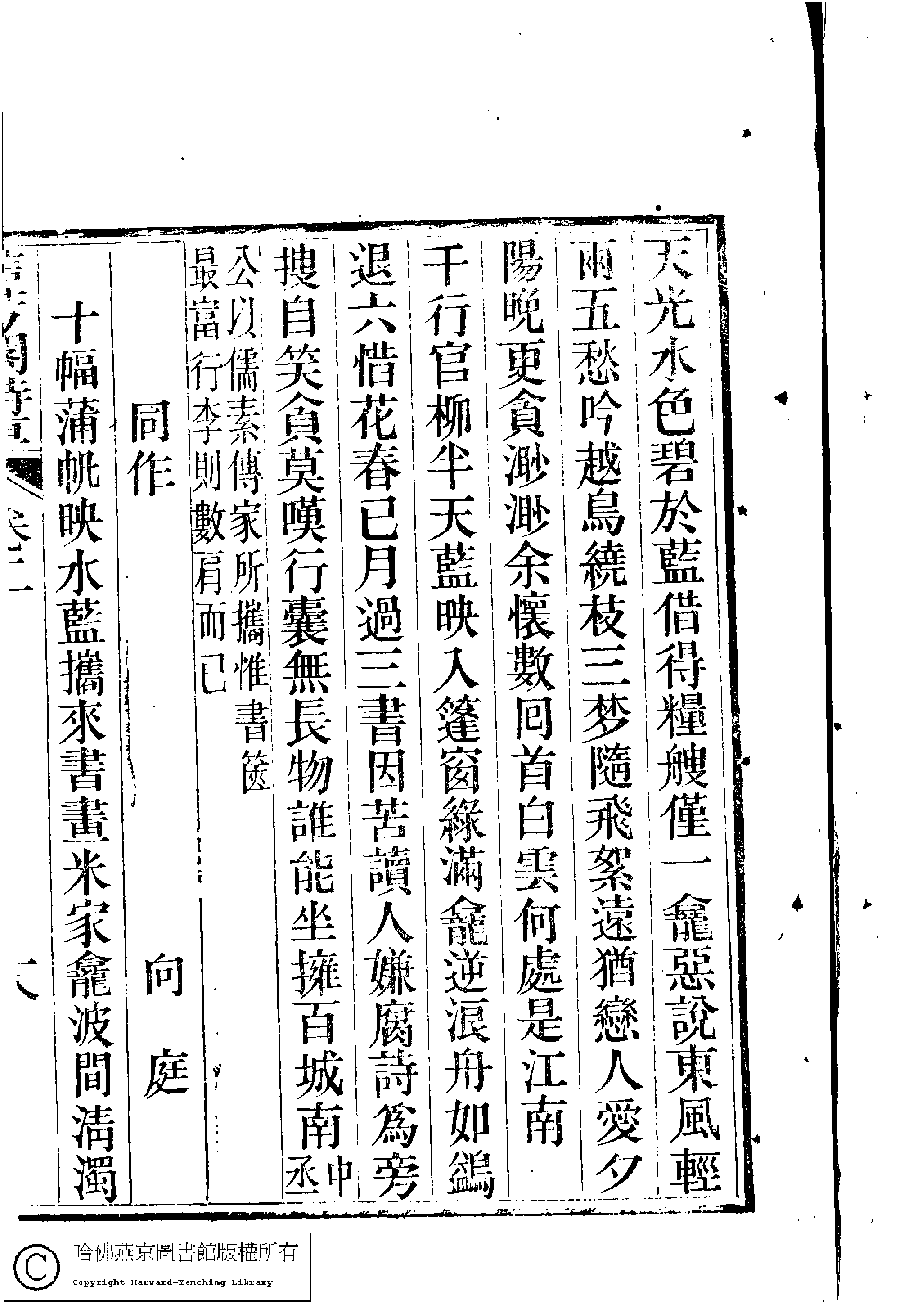 天光水色碧於藍借得糧艘僅一龕惡說東風輕
雨五愁吟越鳥繞枝三梦隨飛絮遠猶戀人愛夕
陽晚更貪渺渺余懷數回首白雲何處是江南
千行官柳半天藍映入篷窗綠滿龕逆浪舟如鷁
退六惜花春已月過三書因苦讀人嫌腐詩為旁
搜自笑貪莫嘆行囊無長物誰能坐擁百城南中丞
公以儒素傳家所攜惟書篋
最富行李則數肩而已
同作 向庭
十幅蒲帆映水藍攜來書畫米家龕波間清濁
卷二
哈佛燕京圖書館版權所有
Copyright Harvard-Yenching Library